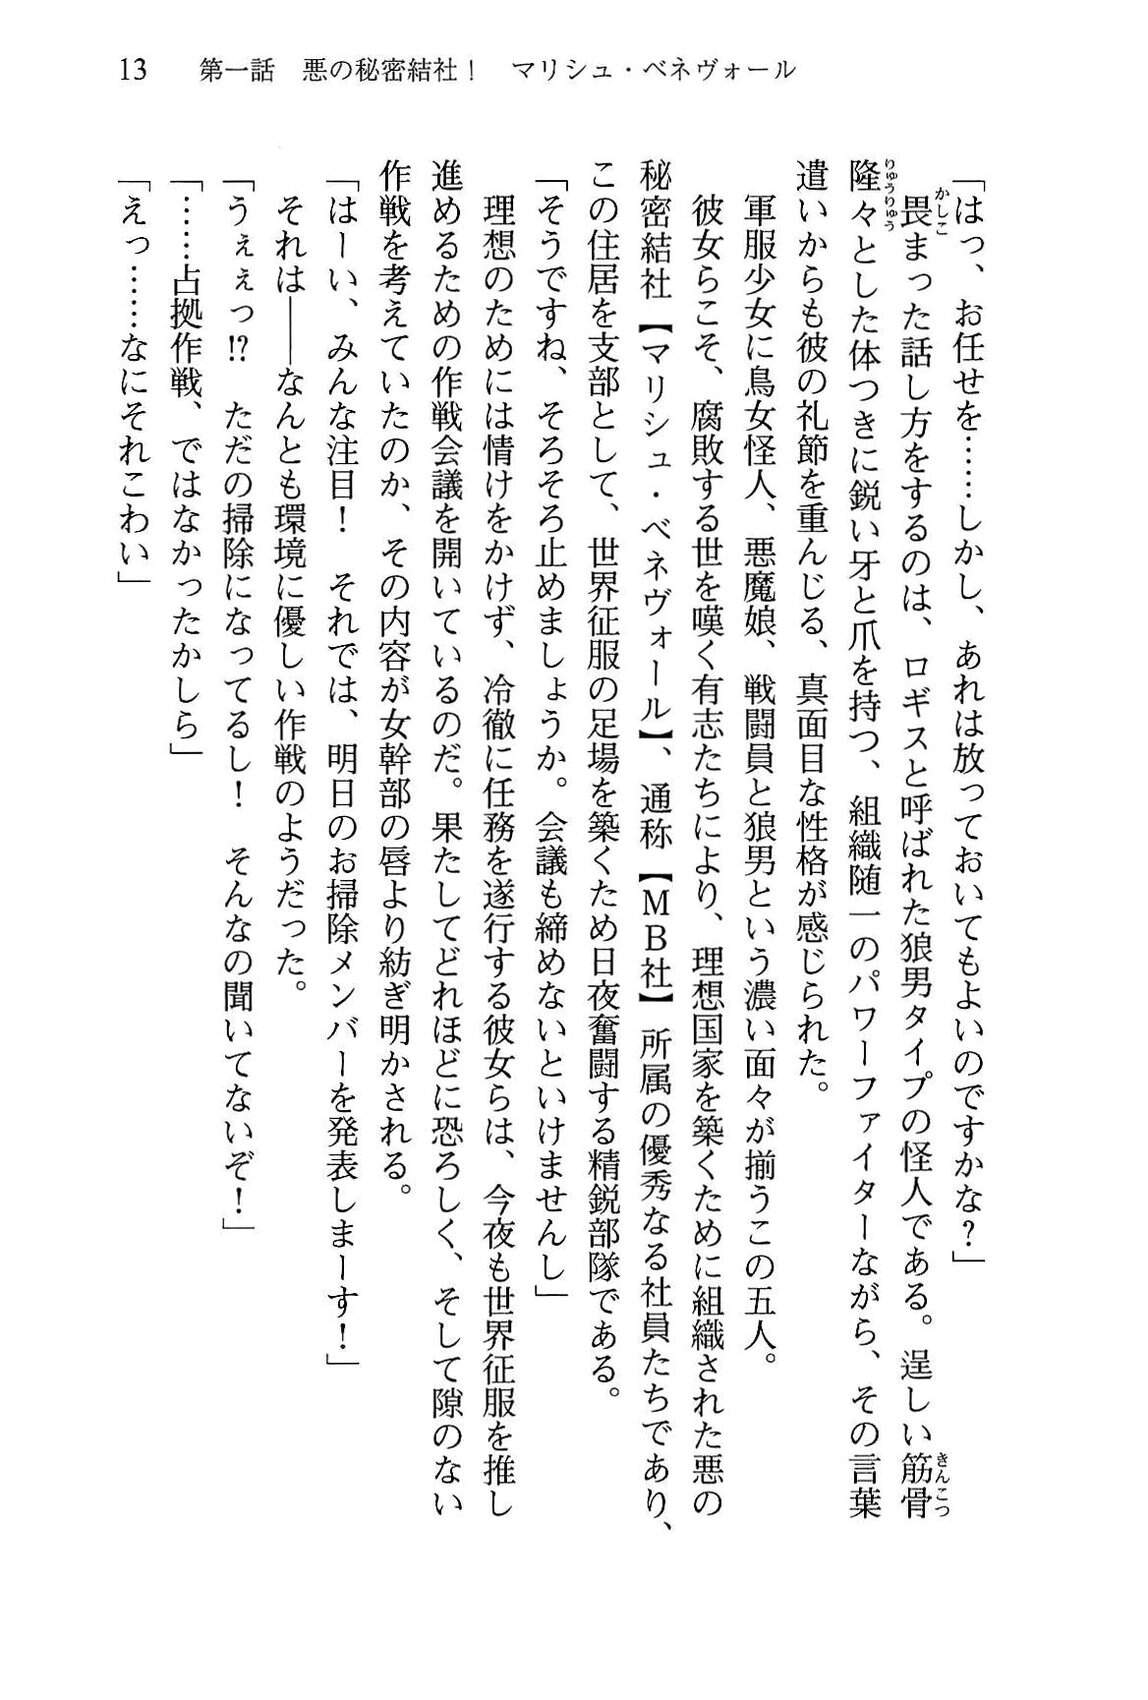 13　第一話　悪の秘密結社！　マリシュ・ベネヴォール
「はっ、お任せを……しかし、あれは放っておいてもよいのですかな？」
　畏まった話し方をするのは、ロギスと呼ばれた狼男タイプの怪人である。逞しい筋骨
隆々とした体つきに鋭い牙と爪を持つ、組織随一のパワーファイターながら、その言葉
遣いからも彼の礼節を重んじる、真面目な性格が感じられた。
　軍服少女に鳥女怪人、悪魔娘、戦闘員と狼男という濃い面々が揃うこの五人。
　彼女らこそ、腐敗する世を嘆く有志たちにより、理想国家を築くために組織された悪の
秘密結社【マリシュ・ベネヴォール】、通称【ＭＢ社】所属の優秀なる社員たちであり、
この住居を支部として、世界征服の足場を築くため日夜奮闘する精鋭部隊である。
「そうですね、そろそろ止めましょうか。会議も締めないといけませんし」
　理想のためには情けをかけず、冷徹に任務を遂行する彼女らは、今夜も世界征服を推し
進めるための作戦会議を開いているのだ。果たしてどれほどに恐ろしく、そして隙のない
作戦を考えていたのか、その内容が女幹部の唇より紡ぎ明かされる。
「はーい、みんな注目！　それでは、明日のお掃除メンバーを発表しまーす！」
　それは――なんとも環境に優しい作戦のようだった。
「うぇぇっ!?　ただの掃除になってるし！　そんなの聞いてないぞ！」
「……占拠作戦、ではなかったかしら」
「えっ……なにそれこわい」